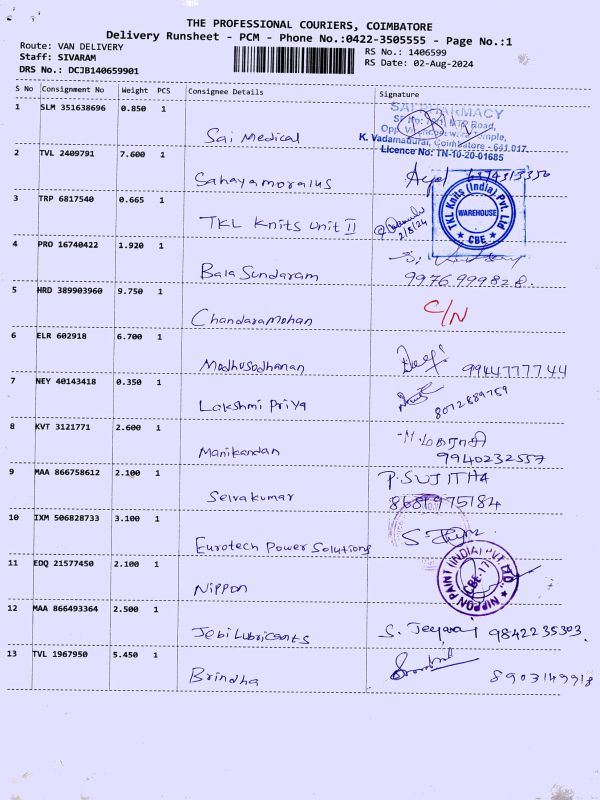 THE PROFESSIONAL COURIERS, COIMBATORE
Delivery Runsheet - PCM - Phone No.:0422-3505555 - Page No.:1
Route: VAN DELIVERY
RS No.: 1406599
Staff: SIVARAM
RS Date: 02-Aug-2024
DRS No.: DCJB140659901
S No Consignment No Weight PCS Consignee Details Signature
1 SLM 351638696 0.850 1 Sai Medical
SAI PHARMACY
K. Vadamadurai, Coimbatore - 641 017.
Licence No: TN-10-20-01685
2 TVL 2409791 7.600 1 Sahayamoralus
3 TRP 6817540 0.665 1 TKL Knits Unit II
2/8/24
TKL Knits (India) Pvt. Ltd
WAREHOUSE
★ CBE ★
4 PRO 16740422 1.920 1 Bala Sundaram
9976999828.
5 HRD 389903960 9.750 1 Chandaramohan C/N
6 ELR 602918 6.700 1 Madhusodhanan
9944777744
7 NEY 40143418 0.350 1 Lakshmi Priya
8072889759
8 KVT 3121771 2.600 1 Manikandan
9940232557
9 MAA 866758612 2.100 1 Selvakumar P. SUJITHA
8681975184
10 IXM 506828733 3.100 1 Eurotech Power Solutions
11 EDQ 21577450 2.100 1 Nippon
NIPPON PAINT (INDIA) PVT. LTD
CBE-17
12 MAA 866493364 2.500 1 Jebi Lubricants S. Jeejaraj 9842235303
13 TVL 1967950 5.450 1 Brindha 8903149918